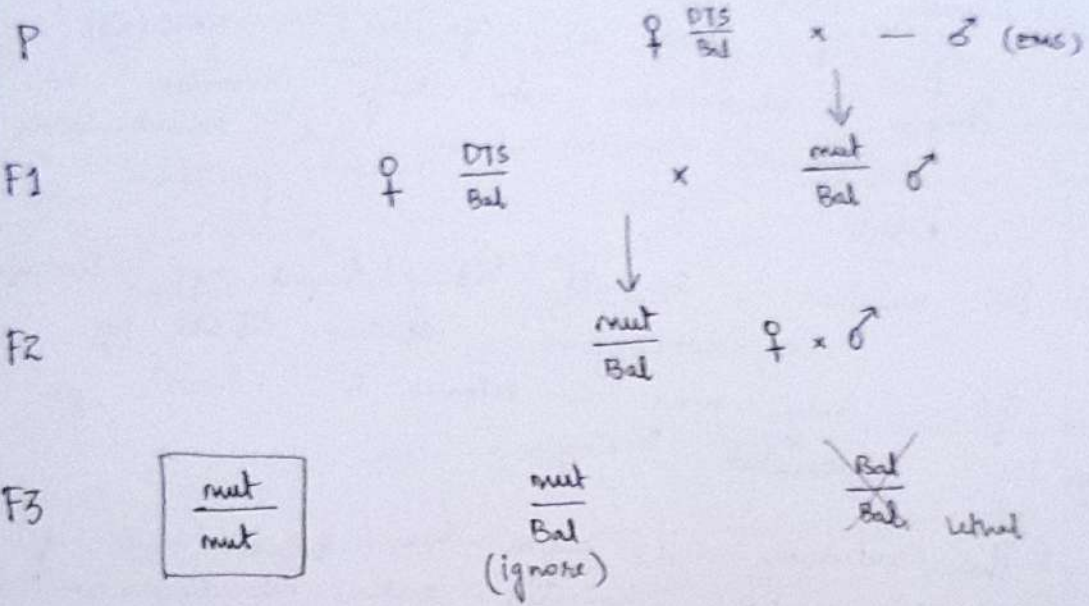 P ♀ DTS/Bal × — ♂ (EMS)
F1 ♀ DTS/Bal × mut/Bal ♂
F2 mut/Bal ♀ × ♂
F3 mut/mut mut/Bal Bal/Bal lethal
(ignore)